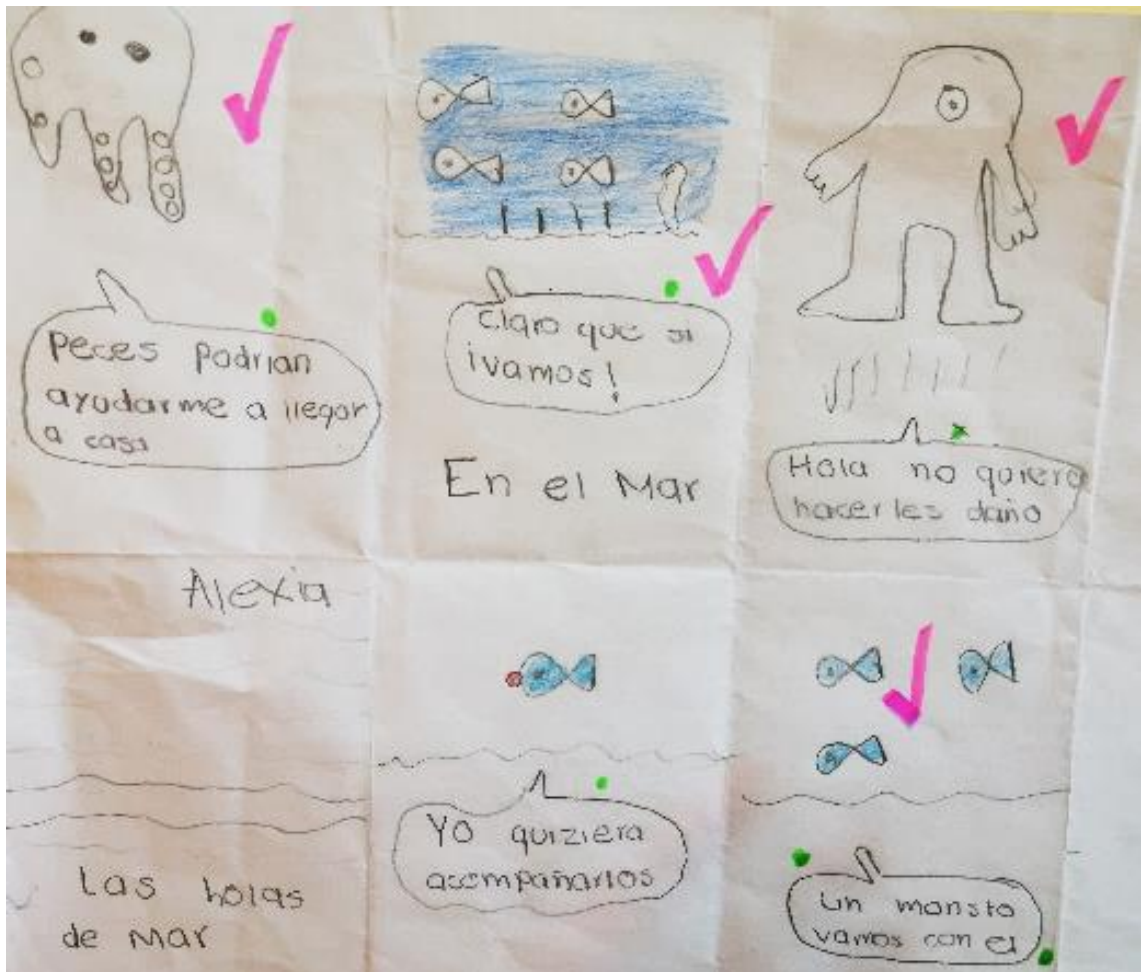 Peces Podrian
ayudarme a llegar
a casa
Claro que si
¡vamos!
En el Mar
Hola no quiero
hacerles daño
Alexia
Las holas
de Mar
Yo quiziera
acompañarlos
un monsto
vamos con el